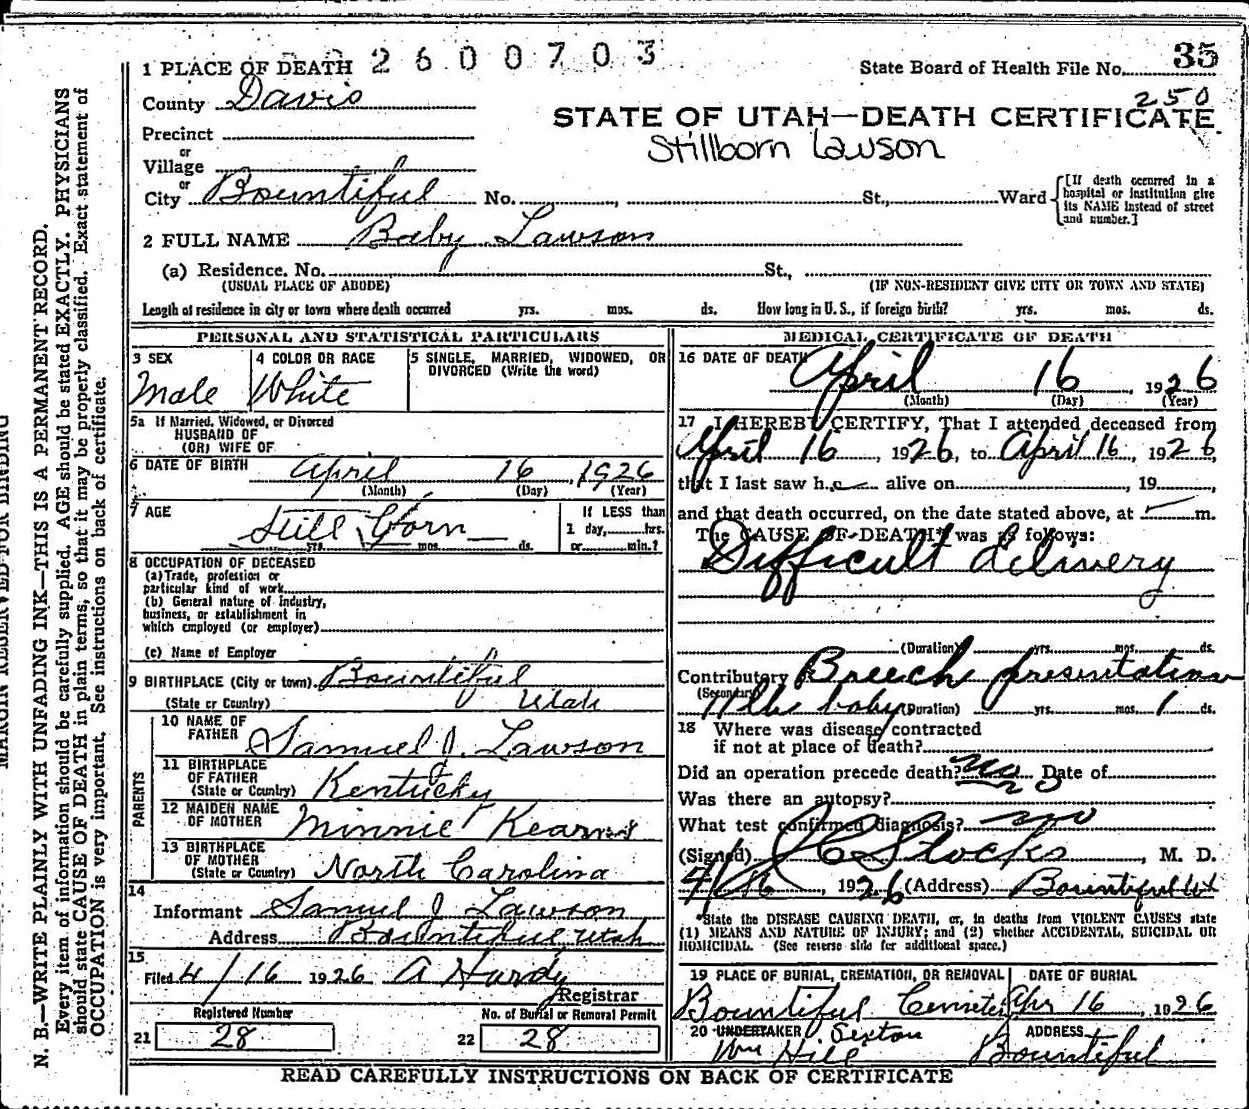 1 PLACE OF DEATH 2600703
State Board of Health File No. 35
County Davis
250
STATE OF UTAH—DEATH CERTIFICATE
Stillborn Lawson
Precinct
or
Village
or
City Bountiful No. , St., Ward
[If death occurred in a hospital or institution give its NAME instead of street and number.]
2 FULL NAME Baby Lawson
(a) Residence. No. St.,
(USUAL PLACE OF ABODE) (IF NON-RESIDENT GIVE CITY OR TOWN AND STATE)
Length of residence in city or town where death occurred yrs. mos. ds. How long in U. S., if foreign birth? yrs. mos. ds.
PERSONAL AND STATISTICAL PARTICULARS
3 SEX
Male
4 COLOR OR RACE
White
5 SINGLE, MARRIED, WIDOWED, OR
DIVORCED (Write the word)
5a If Married, Widowed, or Divorced
HUSBAND OF
(OR) WIFE OF
6 DATE OF BIRTH April 16, 1926
(Month) (Day) (Year)
7 AGE
Still Born
yrs. mos. ds.
If LESS than
1 day, hrs.
or min.?
8 OCCUPATION OF DECEASED
(a) Trade, profession or
particular kind of work
(b) General nature of industry,
business, or establishment in
which employed (or employer)
(c) Name of Employer
9 BIRTHPLACE (City or town) Bountiful
(State or Country) Utah
PARENTS
10 NAME OF
FATHER Samuel J. Lawson
11 BIRTHPLACE
OF FATHER
(State or Country) Kentucky
12 MAIDEN NAME
OF MOTHER Minnie Kearns
13 BIRTHPLACE
OF MOTHER
(State or Country) North Carolina
14
Informant Samuel J Lawson
Address Bountiful, Utah
15
Filed 4/16 1926 A Hardy
Registrar
Registered Number
21 28
No. of Burial or Removal Permit
22 28
MEDICAL CERTIFICATE OF DEATH
16 DATE OF DEATH April 16, 1926
(Month) (Day) (Year)
17 I HEREBY CERTIFY, That I attended deceased from
April 16, 1926, to April 16, 1926,
that I last saw h alive on , 19
and that death occurred, on the date stated above, at m.
The CAUSE OF DEATH* was as follows:
Difficult delivery
(Duration) yrs. mos. ds.
Contributory Breech presentation
(Secondary) 11 lbs baby (Duration) yrs. mos. 1 ds.
18 Where was disease contracted
if not at place of death?
Did an operation precede death? no Date of
no
Was there an autopsy?
What test confirmed diagnosis? no
(Signed) Stocks, M. D.
4/16, 1926 (Address) Bountiful Ut
*State the DISEASE CAUSING DEATH, or, in deaths from VIOLENT CAUSES state
(1) MEANS AND NATURE OF INJURY; and (2) whether ACCIDENTAL, SUICIDAL OR
HOMICIDAL. (See reverse side for additional space.)
19 PLACE OF BURIAL, CREMATION, OR REMOVAL
DATE OF BURIAL
Bountiful Cemetery Apr 16, 1926
20 UNDERTAKER Sexton ADDRESS
Wm Hill Bountiful
READ CAREFULLY INSTRUCTIONS ON BACK OF CERTIFICATE
MARGIN RESERVED FOR BINDING
N. B.—WRITE PLAINLY WITH UNFADING INK—THIS IS A PERMANENT RECORD.
Every item of information should be carefully supplied. AGE should be stated EXACTLY. PHYSICIANS
should state CAUSE OF DEATH in plain terms, so that it may be properly classified. Exact statement of
OCCUPATION is very important. See instructions on back of certificate.